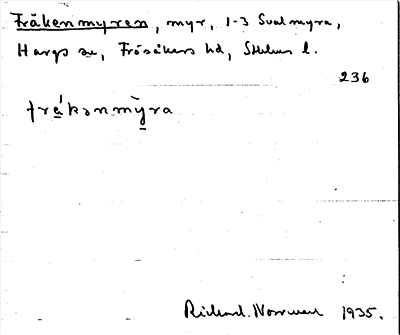 Fräkenmyren, myr, 1-3 Svalmyra,
Hargs sn, Frösåkers hd, Sthlms l.
236
fräkənmỳra
1935.